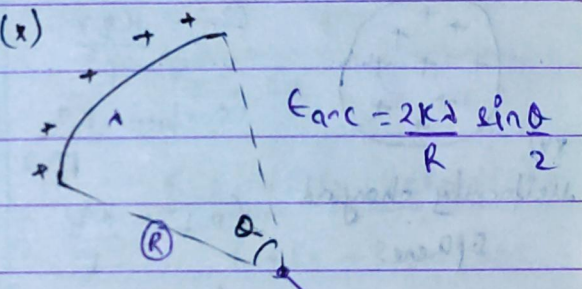 (x)
+ + + + +
λ
Earc = 2Kλ/R sin θ/2
R
θ